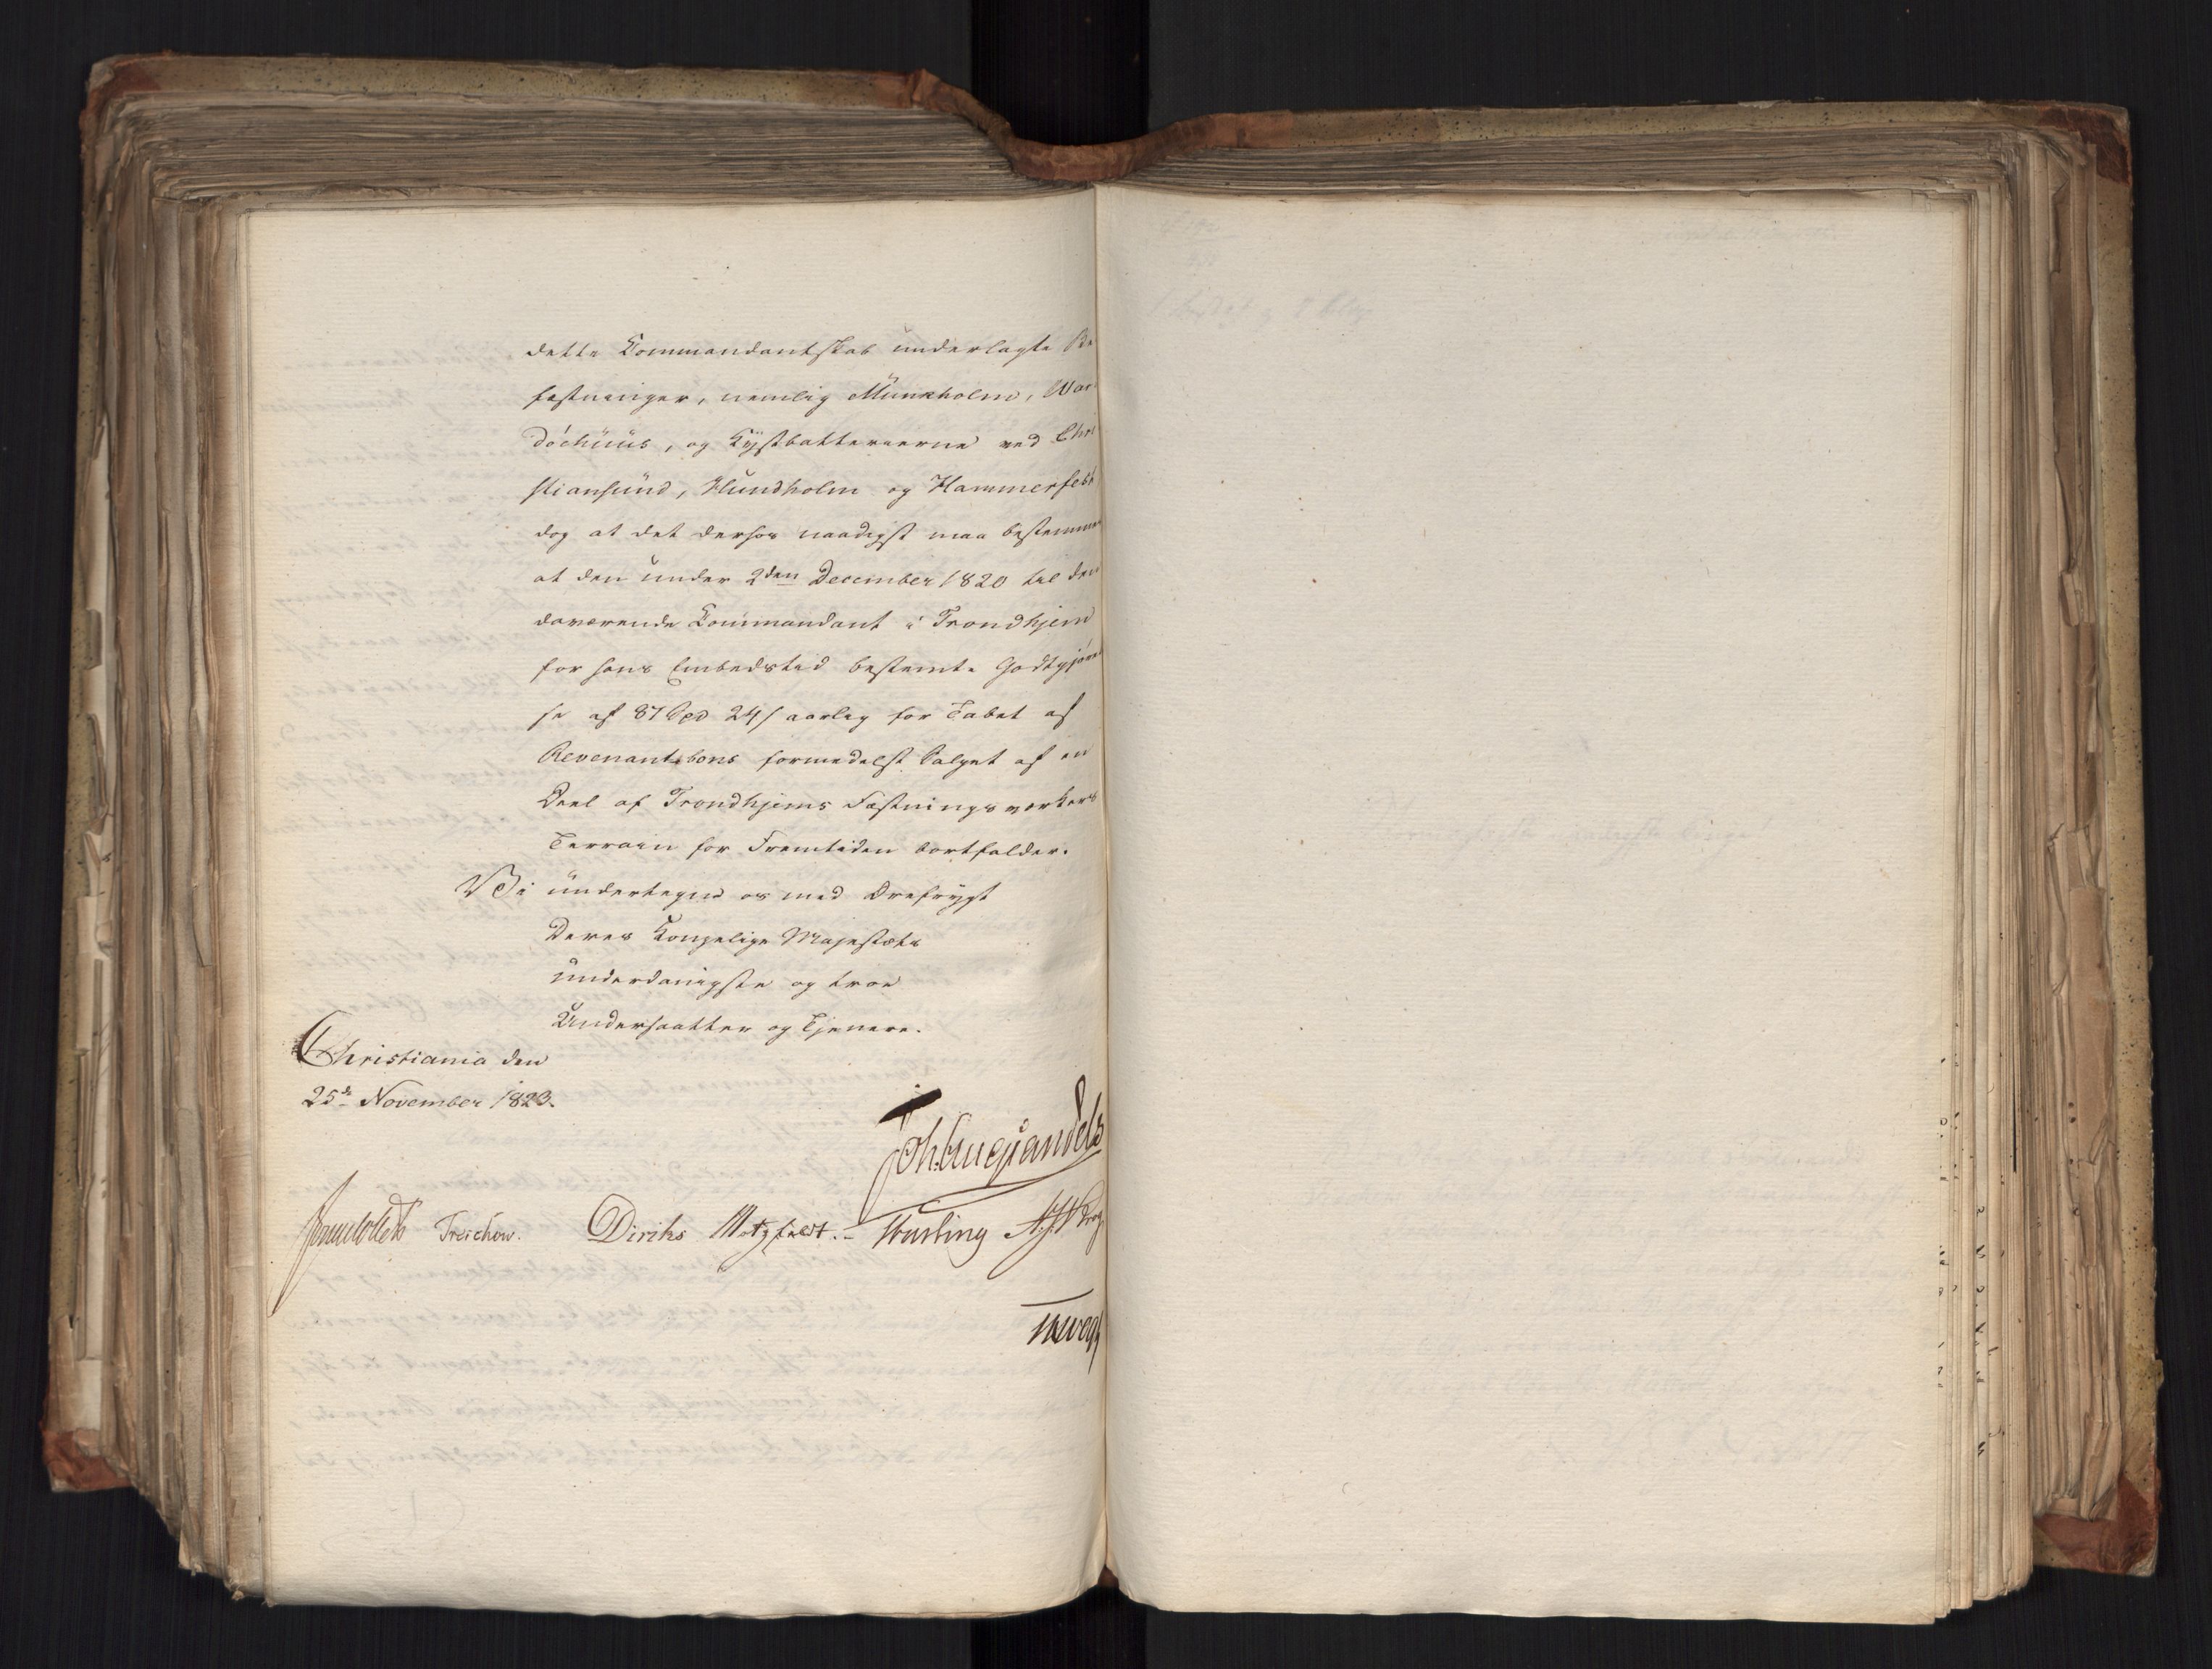 dette Commandantskab underlagte Be
fæstninger, nemlig Munkholm, War
døehuus, og Kystbatterierne ved Chri
stiansund, Hundholm og Hammerfest
dog at det derhos naadigst maa bestemmes
at den under 2den December 1820 til den
daværende Commandant i Trondhjem
for hans Embedstid bestemte Godtgjørel
se af 87 Spd 24 s aarlig for Tabet af
Revenantsbons formedelst Salget af en
Deel af Trondhjems Fæstningsværkers
Terrain for Fremtiden bortfalder.
Vi undertegne os med Ærefrygt
Deres Kongelige Majestæts
underdanigste og troe
Undersaatter og Tjenere.
Christiania den
25de November 1823.
Joh. Aug Sandels
Sommerhielm Treschow. Diriks Motzfeldt. Fasting